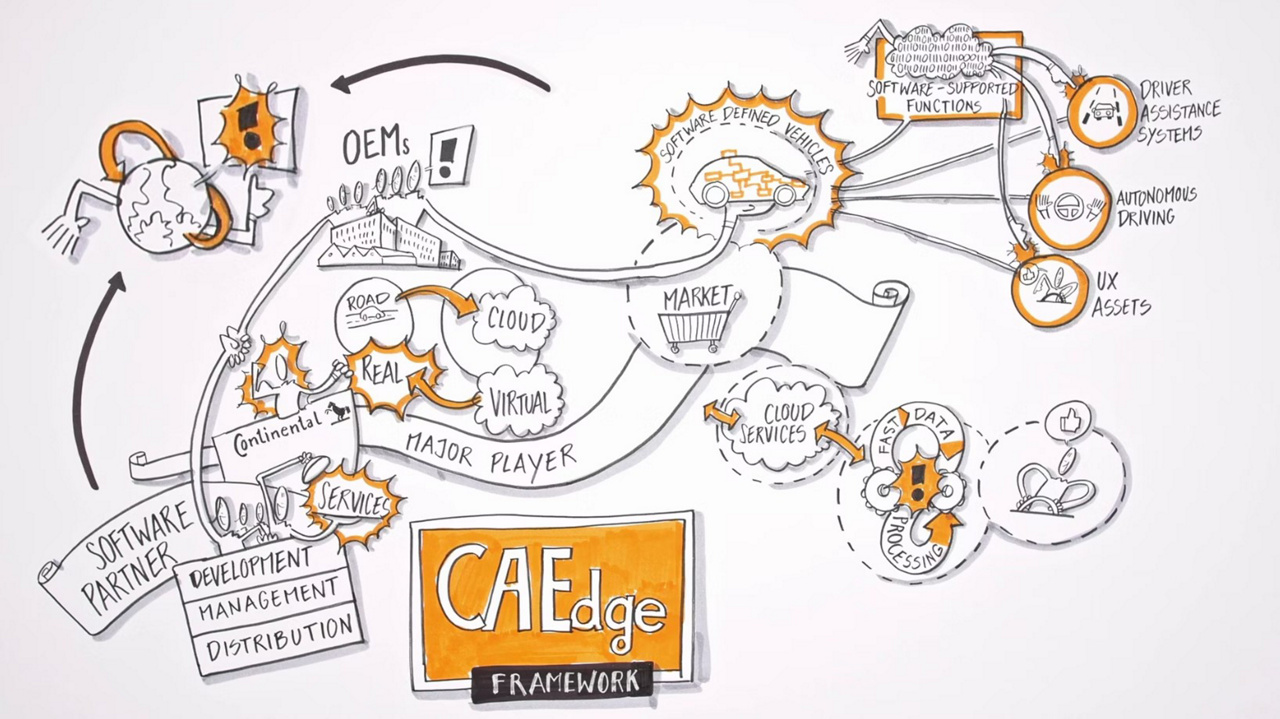 OEMs
SOFTWARE DEFINED VEHICLES
SOFTWARE-SUPPORTED
FUNCTIONS
DRIVER
ASSISTANCE
SYSTEMS
AUTONOMOUS
DRIVING
UX
ASSETS
ROAD
CLOUD
REAL
VIRTUAL
MARKET
CLOUD
SERVICES
FAST DATA
PROCESSING
Continental
MAJOR PLAYER
SERVICES
SOFTWARE
PARTNER
DEVELOPMENT
MANAGEMENT
DISTRIBUTION
CAEdge
FRAMEWORK